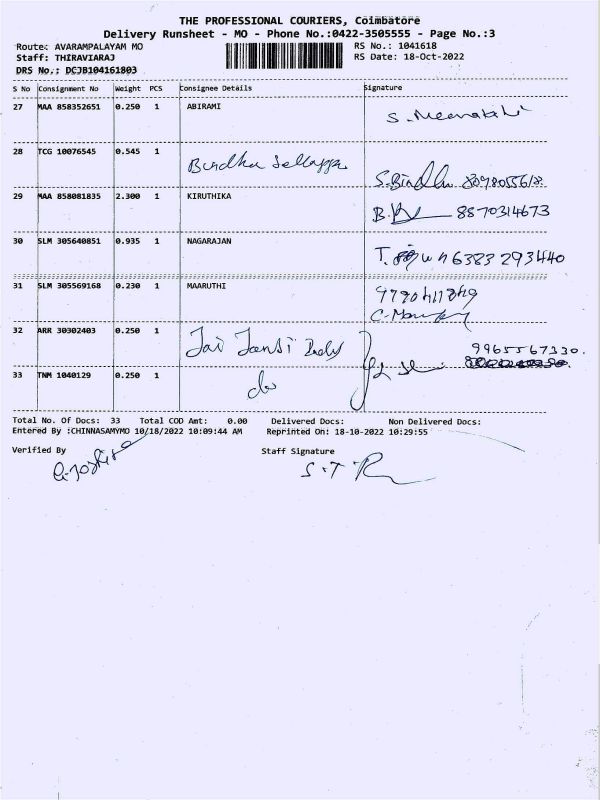 THE PROFESSIONAL COURIERS, Coimbatore
Delivery Runsheet - MO - Phone No.:0422-3505555 - Page No.:3
Route: AVARAMPALAYAM MO RS No.: 1041618
Staff: THIRAVIARAJ RS Date: 18-Oct-2022
DRS No.: DCJB104161803
S No Consignment No Weight PCS Consignee Details Signature
27 MAA 858352651 0.250 1 ABIRAMI S. Meenakshi
28 TCG 10076545 0.545 1 Bindhu Sellappa S. Bindhu
29 MAA 858081835 2.300 1 KIRUTHIKA 8870314673
30 SLM 305640851 0.935 1 NAGARAJAN T. 6383293440
31 SLM 305569168 0.230 1 MAARUTHI
32 ARR 30302403 0.250 1 Jai Jansi 9965567330.
33 TNM 1040129 0.250 1 do
Total No. Of Docs: 33 Total COD Amt: 0.00 Delivered Docs: Non Delivered Docs:
Entered By :CHINNASAMYMO 10/18/2022 10:09:44 AM Reprinted On: 18-10-2022 10:29:55
Verified By Staff Signature
S.T